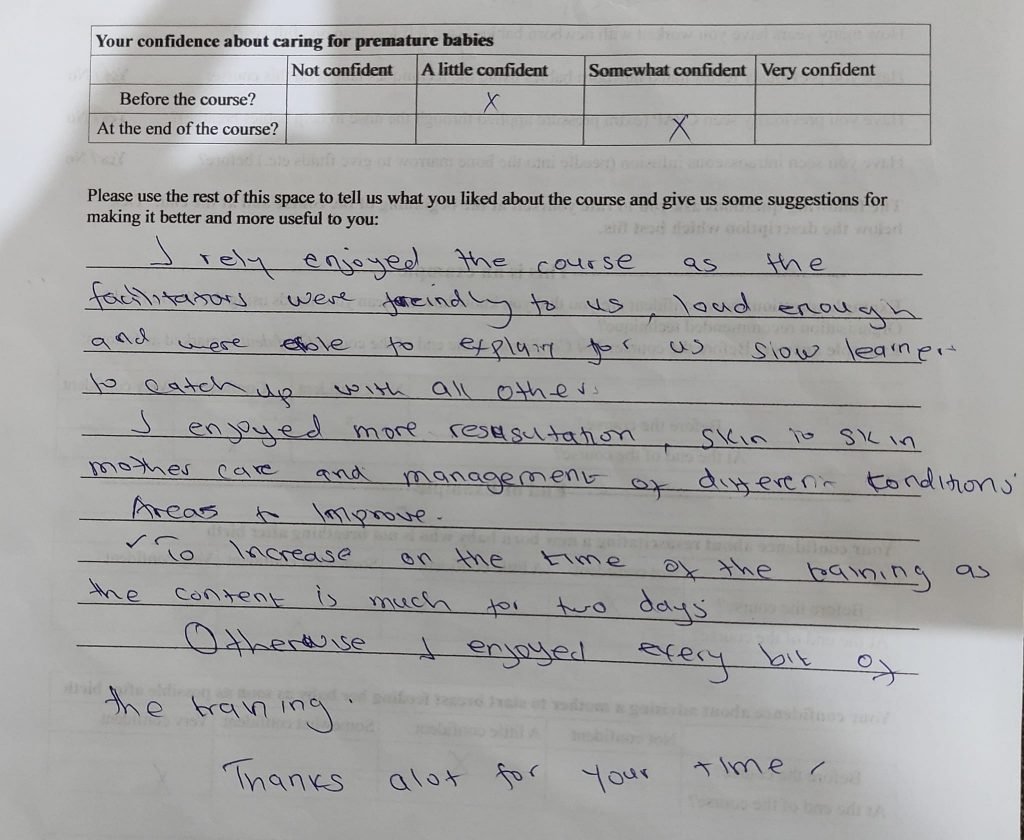 Your confidence about caring for premature babies
Not confident A little confident Somewhat confident Very confident
Before the course? X
At the end of the course? X
Please use the rest of this space to tell us what you liked about the course and give us some suggestions for
making it better and more useful to you:
I rely enjoyed the course as the
facilitators were freindly to us, loud enough
and were able to explain for us slow learner
to catch up with all others
I enjoyed more resusutation, skin to skin
mother care and management of different conditions
Areas to improve.
✓ To increase on the time of the training as
the content is much for two days
Otherwise I enjoyed every bit of
the training.
Thanks alot for your time